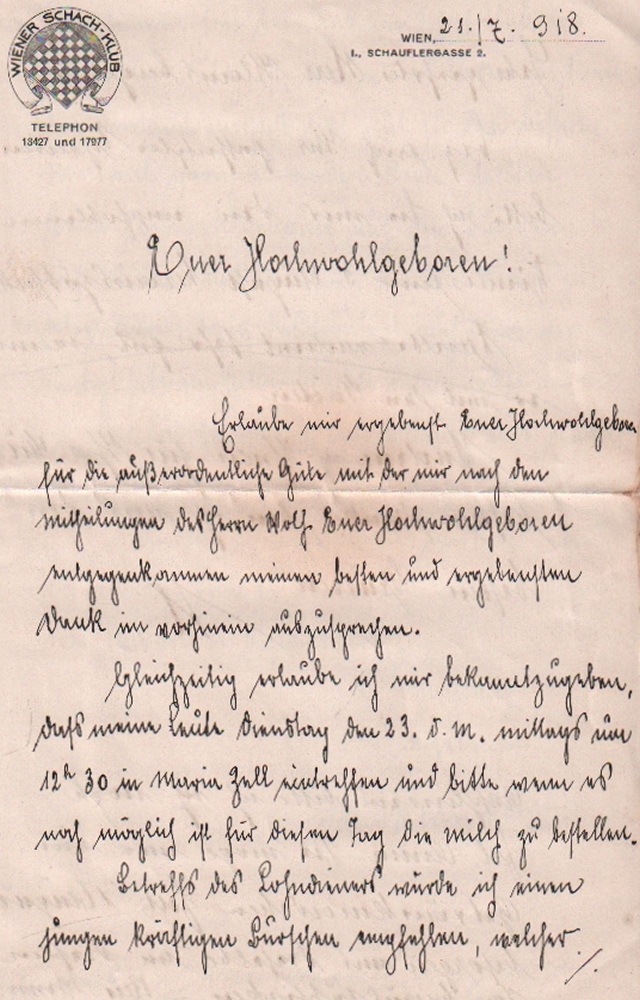 WIENER SCHACH-KLUB
TELEPHON
18427 und 17977
WIEN, 21./7. 918.
I., SCHAUFLERGASSE 2.
Euer Hochwohlgeboren!
Erlaube mir ergebenst Euer Hochwohlgeboren
für die außerordentliche Güte mit der mir nach den
mitheilungen des Herrn Wolf Euer Hochwohlgeboren
entgegenkammen meinen besten und ergebensten
Dank im vorhinein auszusprechen.
Gleichzeitig erlaube ich mir bekanntzugeben,
daß meine Leute Dienstag den 23. d. M. mittags um
12h 30 in Maria Zell eintreffen und bitte wenn es
noch möglich ist für diesen Tag die milch zu bestellen.
Betreffs des Lohndieners würde ich einen
jungen kräftigen Burschen empfehlen, welcher ./.